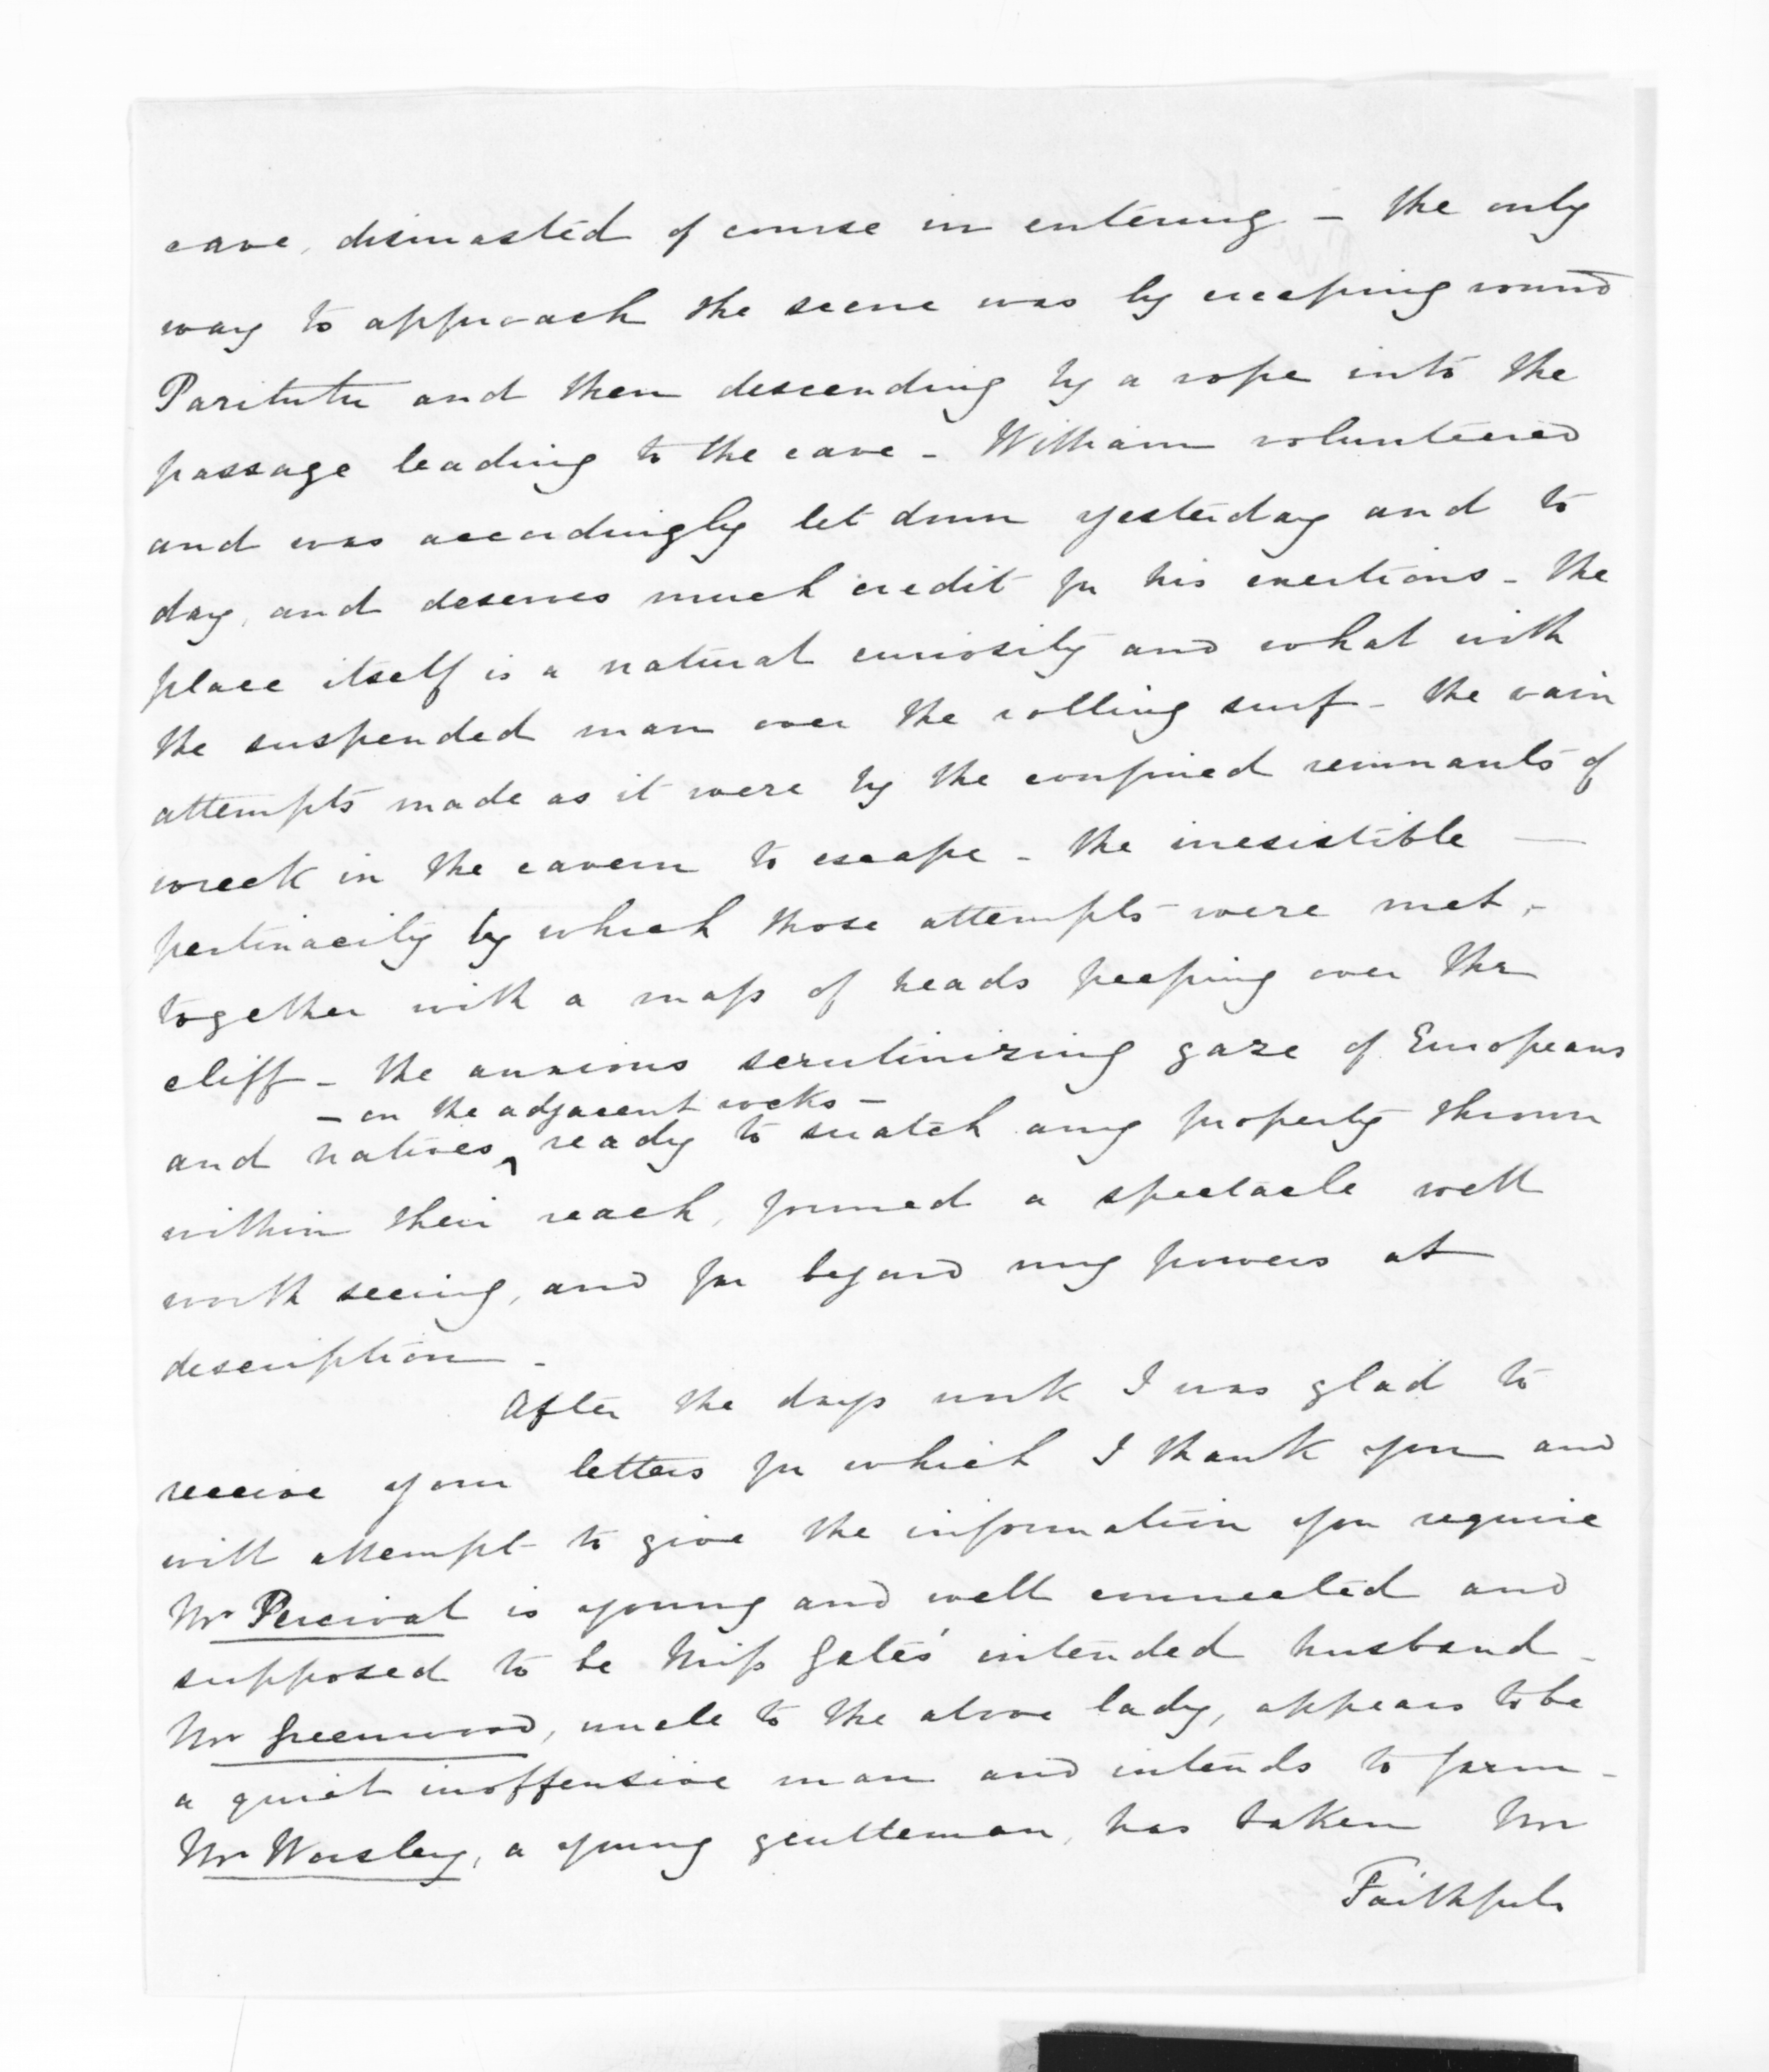 cave, dismasted of course in entering – the only
way to approach the scene was by creeping round
Paritutu and then descending by a rope into the
passage leading to the cave – William volunteered
and was accordingly let down yesterday and to
day, and deserves much credit for his exertions – the
place itself is a natural curiosity and what with
the suspended man over the rolling surf – the vain
attempts made as it were by the confined remnants of
wreck in the cavern to escape – the irresistible —
pertinacity by which those attempts were met, –
together with a mass of heads peeping over the
cliff – the anxious scrutinizing gaze of Europeans
– on the adjacent rocks –
and natives ‸ ready to snatch any property thrown
within their reach, formed a spectacle well
worth seeing, and far beyond my powers at
description –
After the days work I was glad to
receive your letters for which I thank you and
will attempt to give the information you require
Mr Percival is young and well connected and
supposed to be Miss Gates' intended husband –
Mr Greenwood, uncle to the above lady, appears to be
a quiet inoffensive man and intends to farm –
Mr Worsley, a young gentleman, has taken Mr
Faithfuls